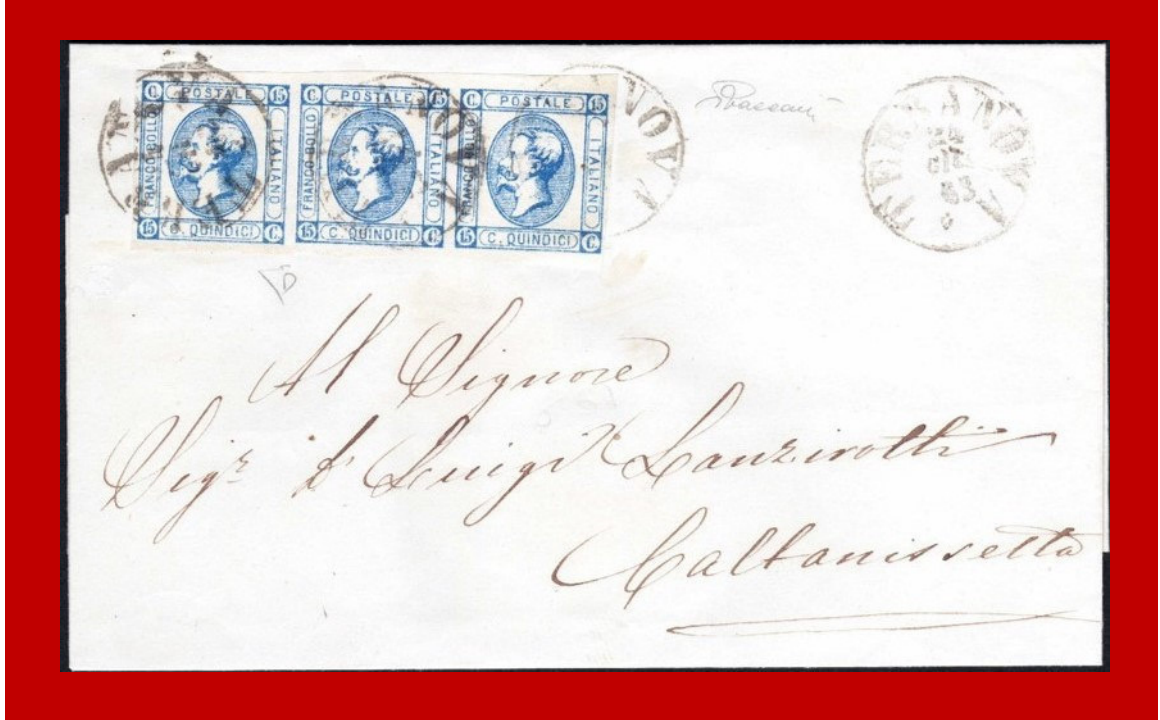 C. POSTALE 15
FRANCO BOLLO
ITALIANO
15 C. QUINDICI C.
C POSTALE 15
FRANCO BOLLO
ITALIANO
15 C. QUINDICI C.
C POSTALE 15
FRANCO BOLLO
ITALIANO
15 C. QUINDICI C.
TERRANOVA
GIU
63
Al Signore
Sigr. Dn Luigi Lanzirotti
Caltanissetta